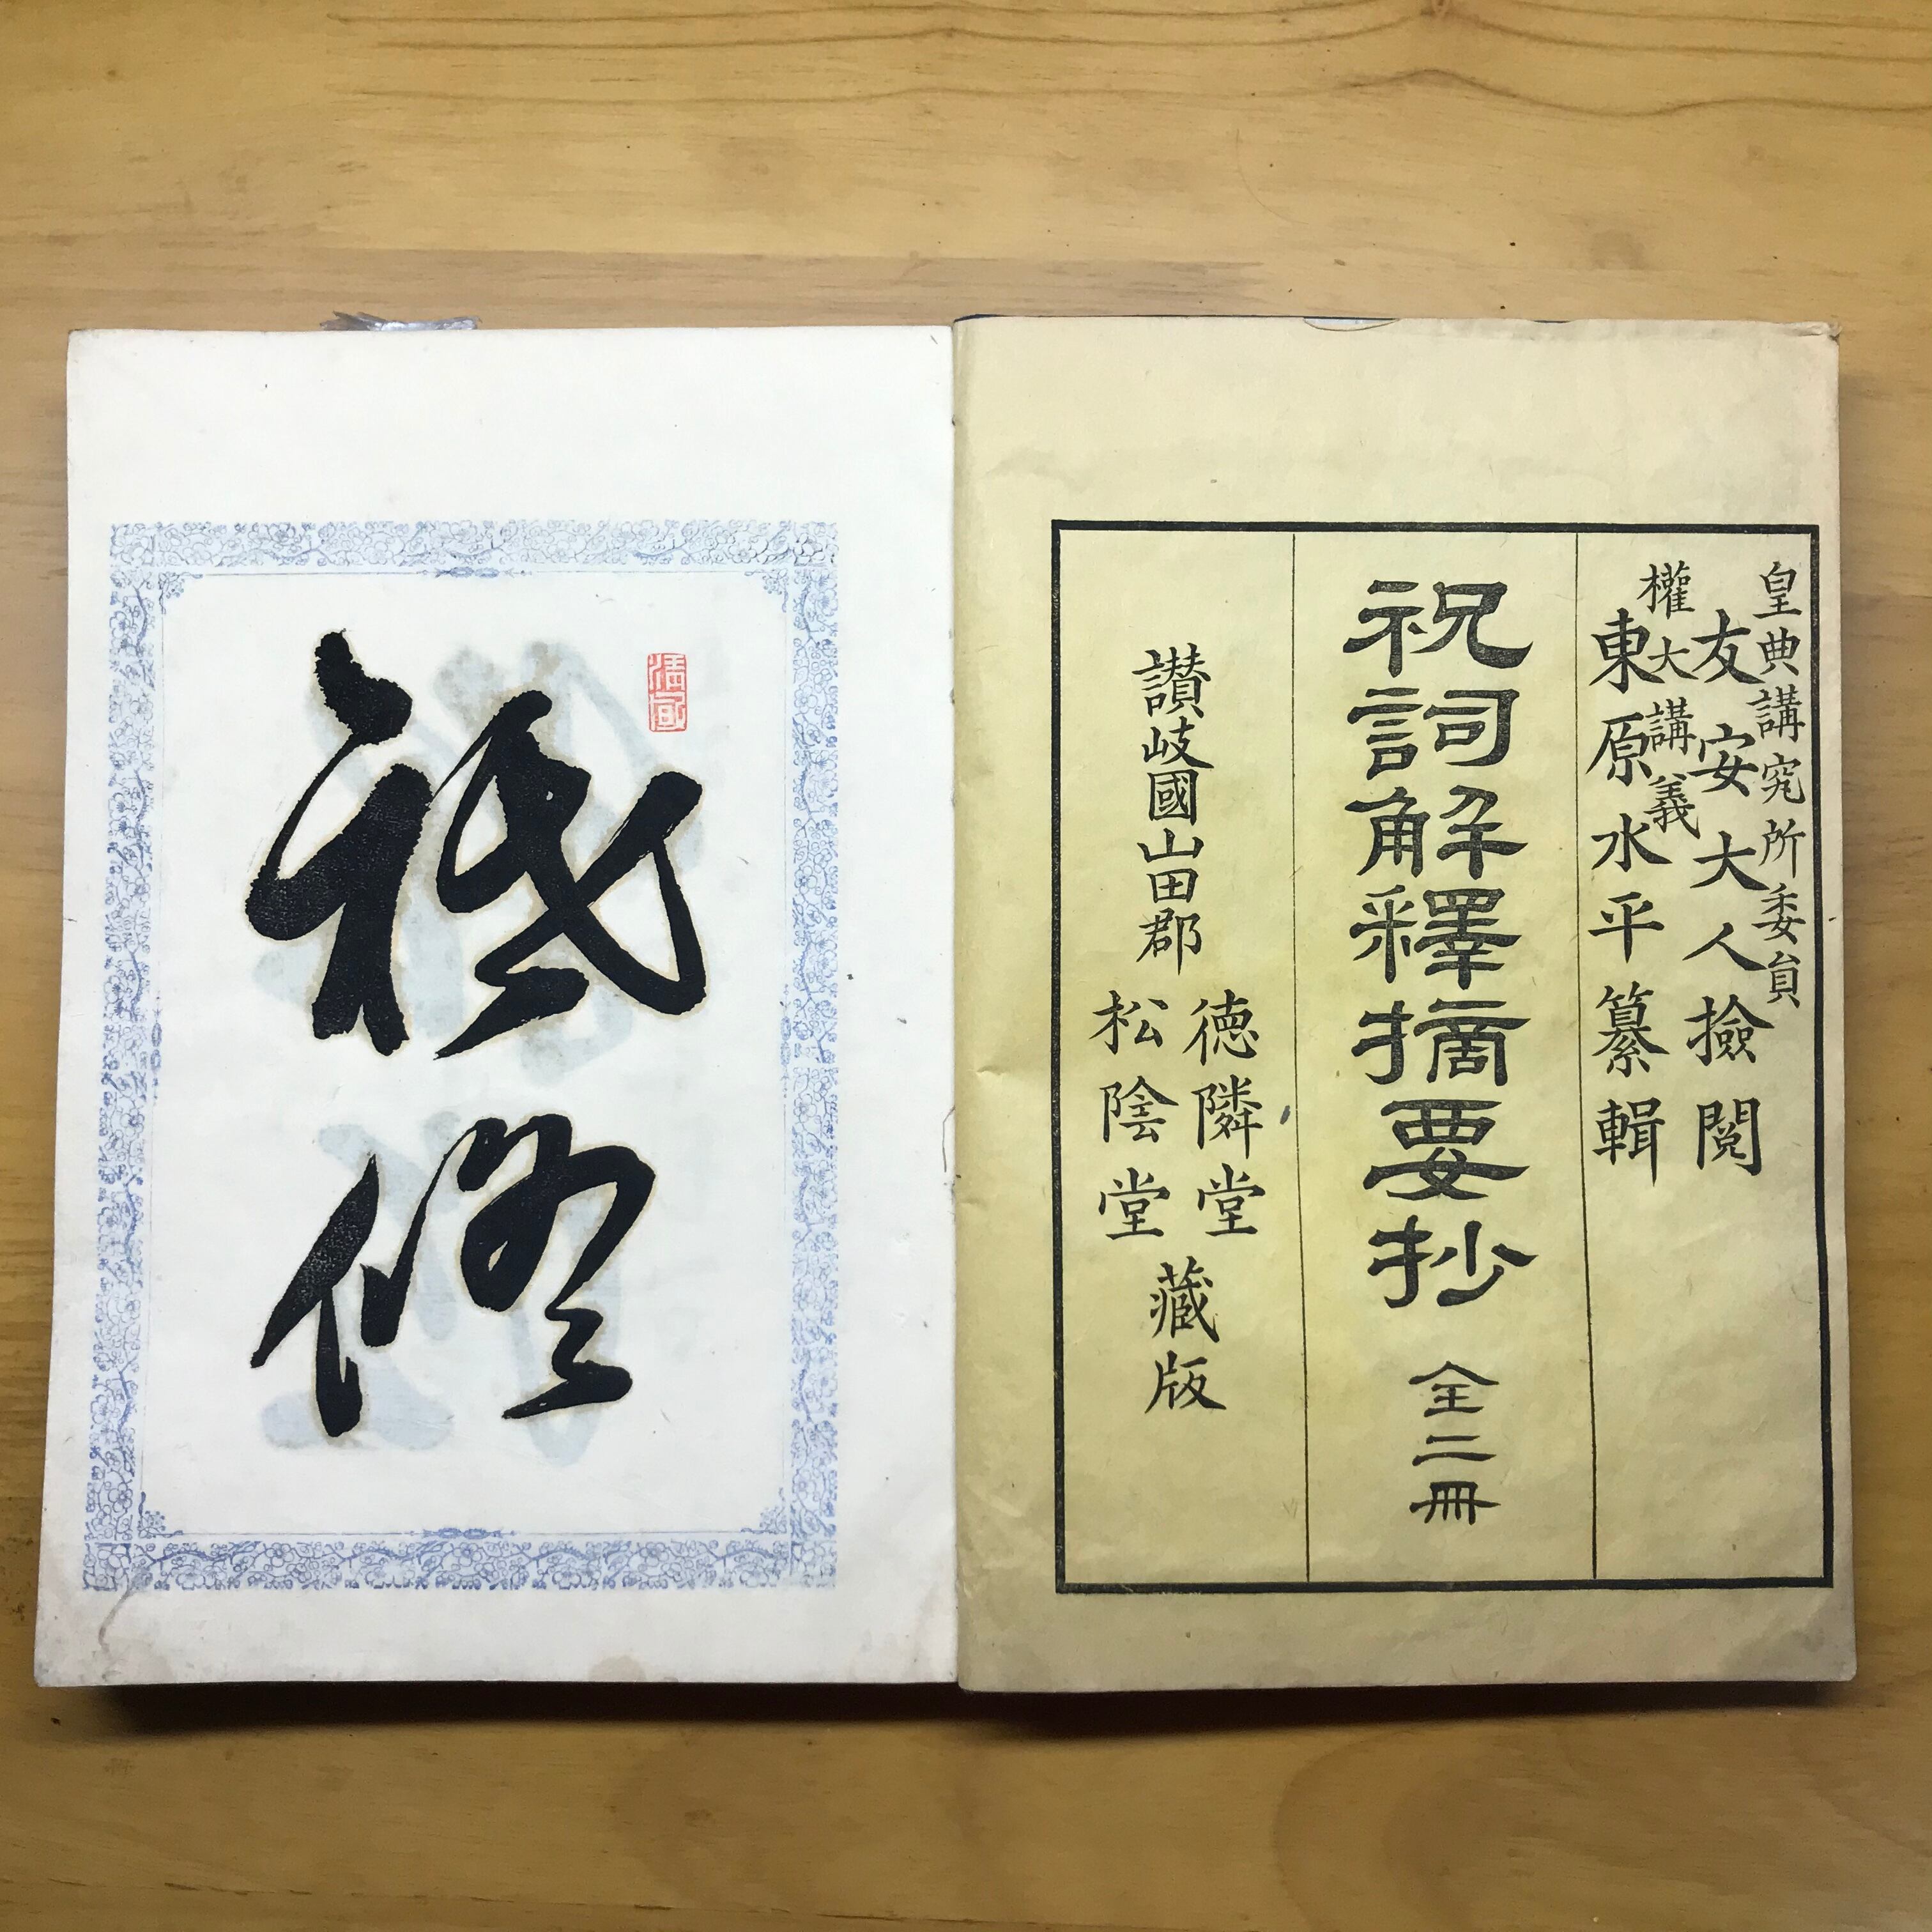 皇典講究所委員
友安大人撿閲
權大講義
東原水平纂輯
祝詞解釋摘要抄 全二冊
讃岐國山田郡
德隣堂
松陰堂
藏版
祗脩